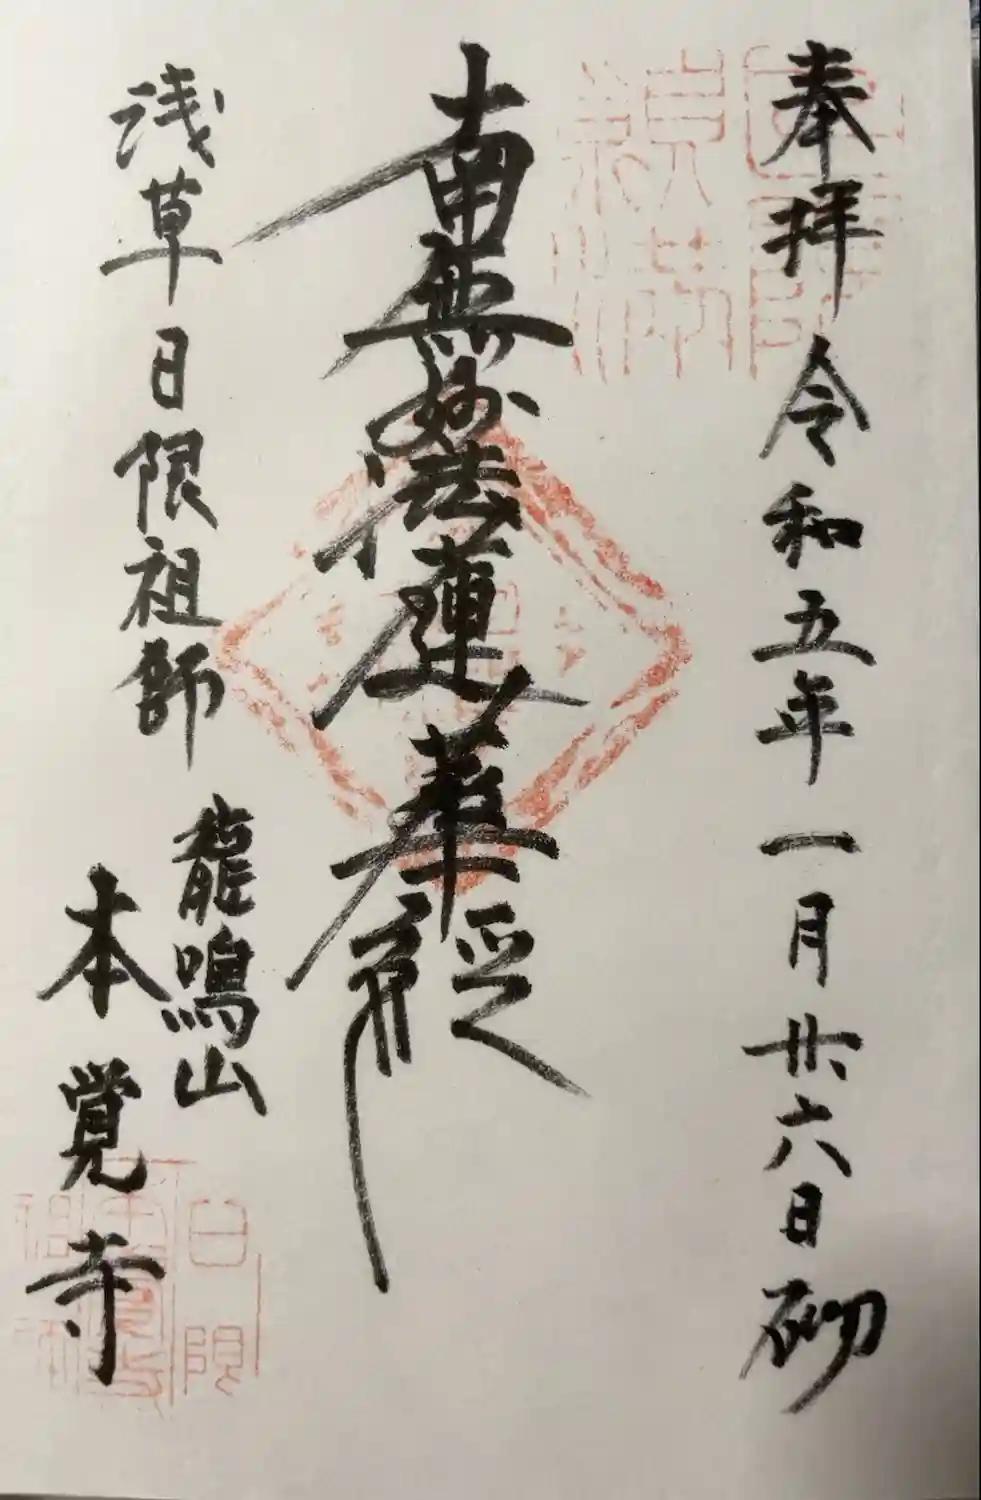 奉拝 令和五年一月廿六日 砌
南無妙法蓮華経
浅草日限祖師
龍鳴山
本覚寺
日限
本覚寺
祖師